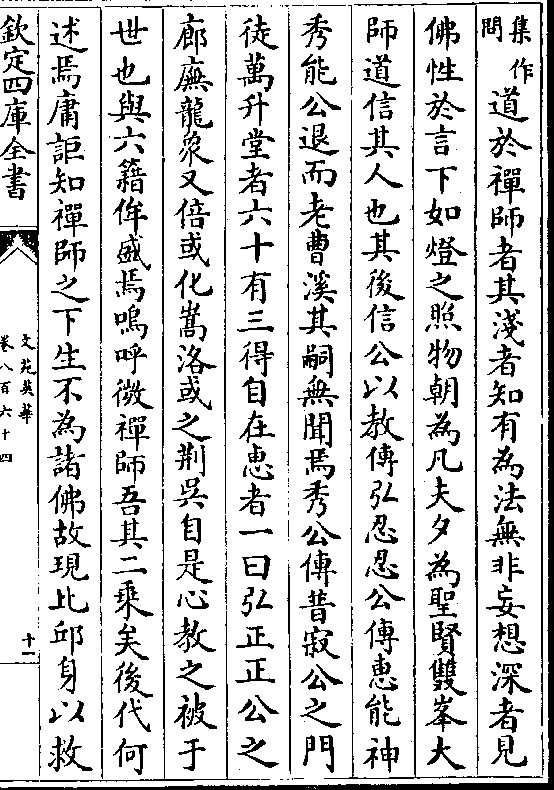 集作
問
道於禪師者其淺者知有為法無非妄想深者見
佛性於言下如燈之照物朝為凡夫夕為聖賢雙峯大
師道信其人也其後信公以教傳弘忍忍公傳惠能神
秀能公退而老曹溪其嗣無聞焉秀公傳普寂公之門
徒萬升堂者六十有三得自在恵者一曰弘正正公之
廊廡龍象又倍或化嵩洛或之荆吳自是心教之被于
世也與六籍侔盛焉嗚呼微禪師吾其二乘矣後代何
述焉庸詎知禪師之下生不為諸佛故現比邱身以救
欽定四庫全書
文苑英華
卷八百六十四
十一